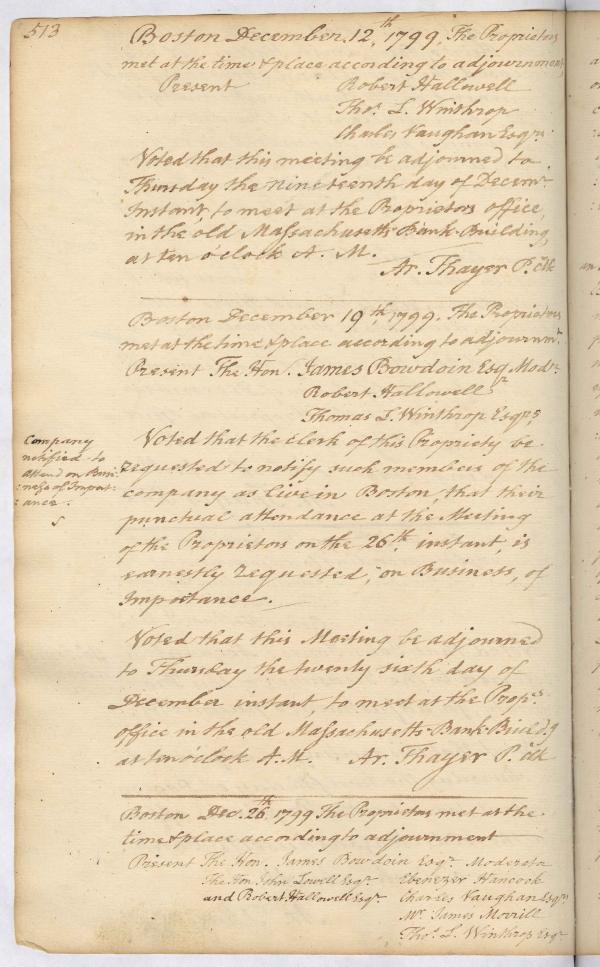 513
Boston December 12th, 1799, The Proprietors
met at the time & place according to adjournment,
Present Robert Hallowell
Thos. L. Winthrop
Charles Vaughan Esqrs.
Voted that this meeting be adjourned to
Thursday the nineteenth day of Decemr.
Instant, to meet at the Proprietors office,
in the old Massachusetts Bank-Building,
at ten o'clock A. M.
Ar. Thayer P. clk
Boston December 19th, 1799. The Proprietors
met at the time & place according to adjournmt.
Present The Hon. James Bowdoin Esqr. Modr.
Robert Hallowell
Thomas L. Winthrop Esqrs,
Company
notified to
attend on Busi-
:ness of Import-
:ance.
Voted that the clerk of this Propriety be
requested to notify such members of the
company as live in Boston, that their
punctual attendance at the Meeting
of the Proprietors on the 26th, instant, is
earnestly requested, on Business, of
Importance.
Voted that this Meeting be adjourned
to Thursday the twenty sixth day of
December instant, to meet at the Props.
office in the old Massachusetts Bank-Build.g
at ten o'clock A.M. Ar. Thayer P. clk
Boston Dec. 26th, 1799 The Proprietors met at the
time & place according to adjournment
Present The Hon. James Bowdoin Esqr. Moderator
The Hon John Lowell Esqr. Ebenezer Hancock
and Robert Hallowell Esqr. Charles Vaughan Esqrs
Mr. James Morrill
Thos. L. Winthrop Esqr.